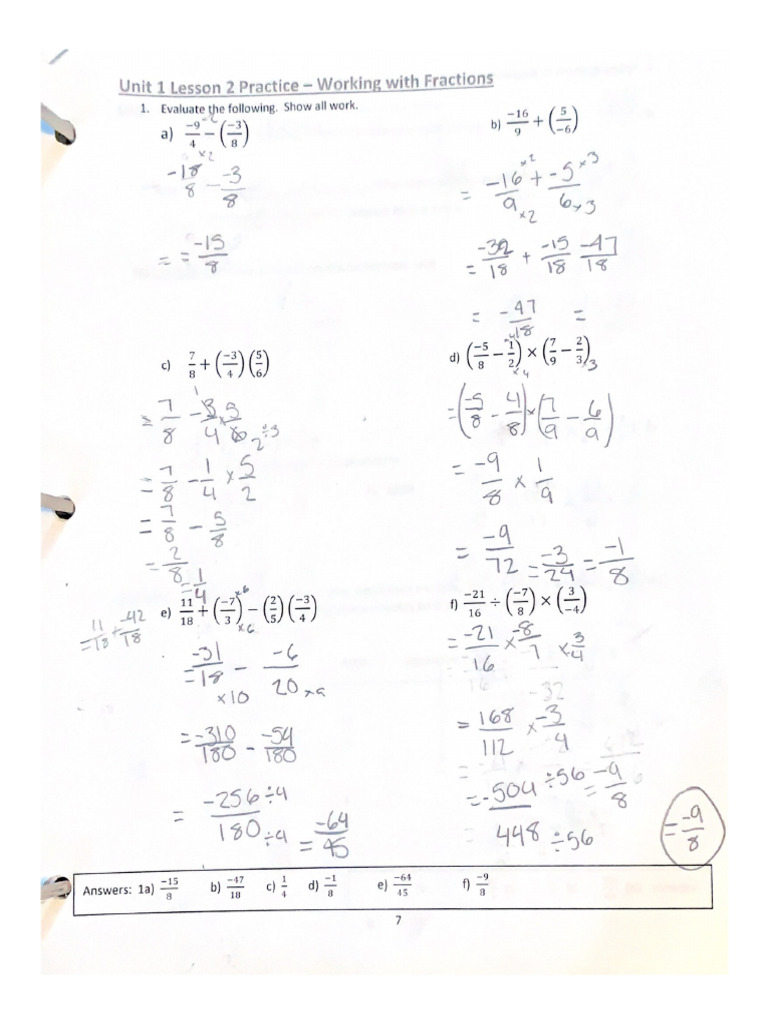 Unit 1 Lesson 2 Practice – Working with Fractions
1. Evaluate the following. Show all work.
a) -9/4 - (-3/8)
×2
-18/8 - -3/8
= = -15/8
b) -16/9 + (5/-6)
= -16/9 ×2/×2 + -5/6 ×3/×3
= -32/18 + -15/18 -47/18
= -47/18 =
c) 7/8 + (-3/4)(5/6)
= 7/8 - 3/4 × 5/6 1 2 ÷3
= 7/8 - 1/4 × 5/2
= 7/8 - 5/8
= 2/8 = 1/4
d) (-5/8 - 1/2) × (7/9 - 2/3) ×4 ×4 3
= (-5/8 - 4/8) × (7/9 - 6/9)
= -9/8 × 1/9
= -9/72 = -3/24 = -1/8
e) 11/18 + (-7/3) - (2/5)(-3/4) ×6 ×6
= 11/18 + -42/18
= -31/18 - -6/20 ×10 ×9
= -310/180 - -54/180
= -256/180 ÷4/÷4 = -64/45
f) -21/16 ÷ (-7/8) × (3/-4)
= -21/16 × -8/7 × 3/4
= 168/112 × -3/4
= -504/448 ÷56/÷56 = -9/8
= -9/8
Answers: 1a) -15/8 b) -47/18 c) 1/4 d) -1/8 e) -64/45 f) -9/8
7